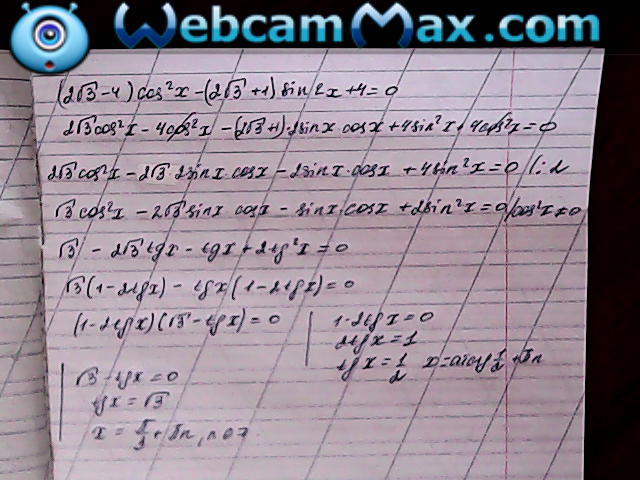 WebcamMax.com
(2√3-4)cos²x-(2√3+1)sin2x+4=0
2√3cos²x-4cos²x-(2√3+1)·2sinx·cosx+4sin²x+4cos²x=0
2√3cos²x-2√3·2sinx·cosx-2sinx·cosx+4sin²x=0 |:2
√3cos²x-2√3sinx cosx-sinx·cosx+2sin²x=0|cos²x≠0
√3-2√3tgx-tgx+2tg²x=0
√3(1-2tgx)-tgx(1-2tgx)=0
(1-2tgx)(√3-tgx)=0
1-2tgx=0
2tgx=1
tgx=1/2 x=arctg1/2+πn
√3-tgx=0
tgx=√3
x=π/3+πn, n∈Z